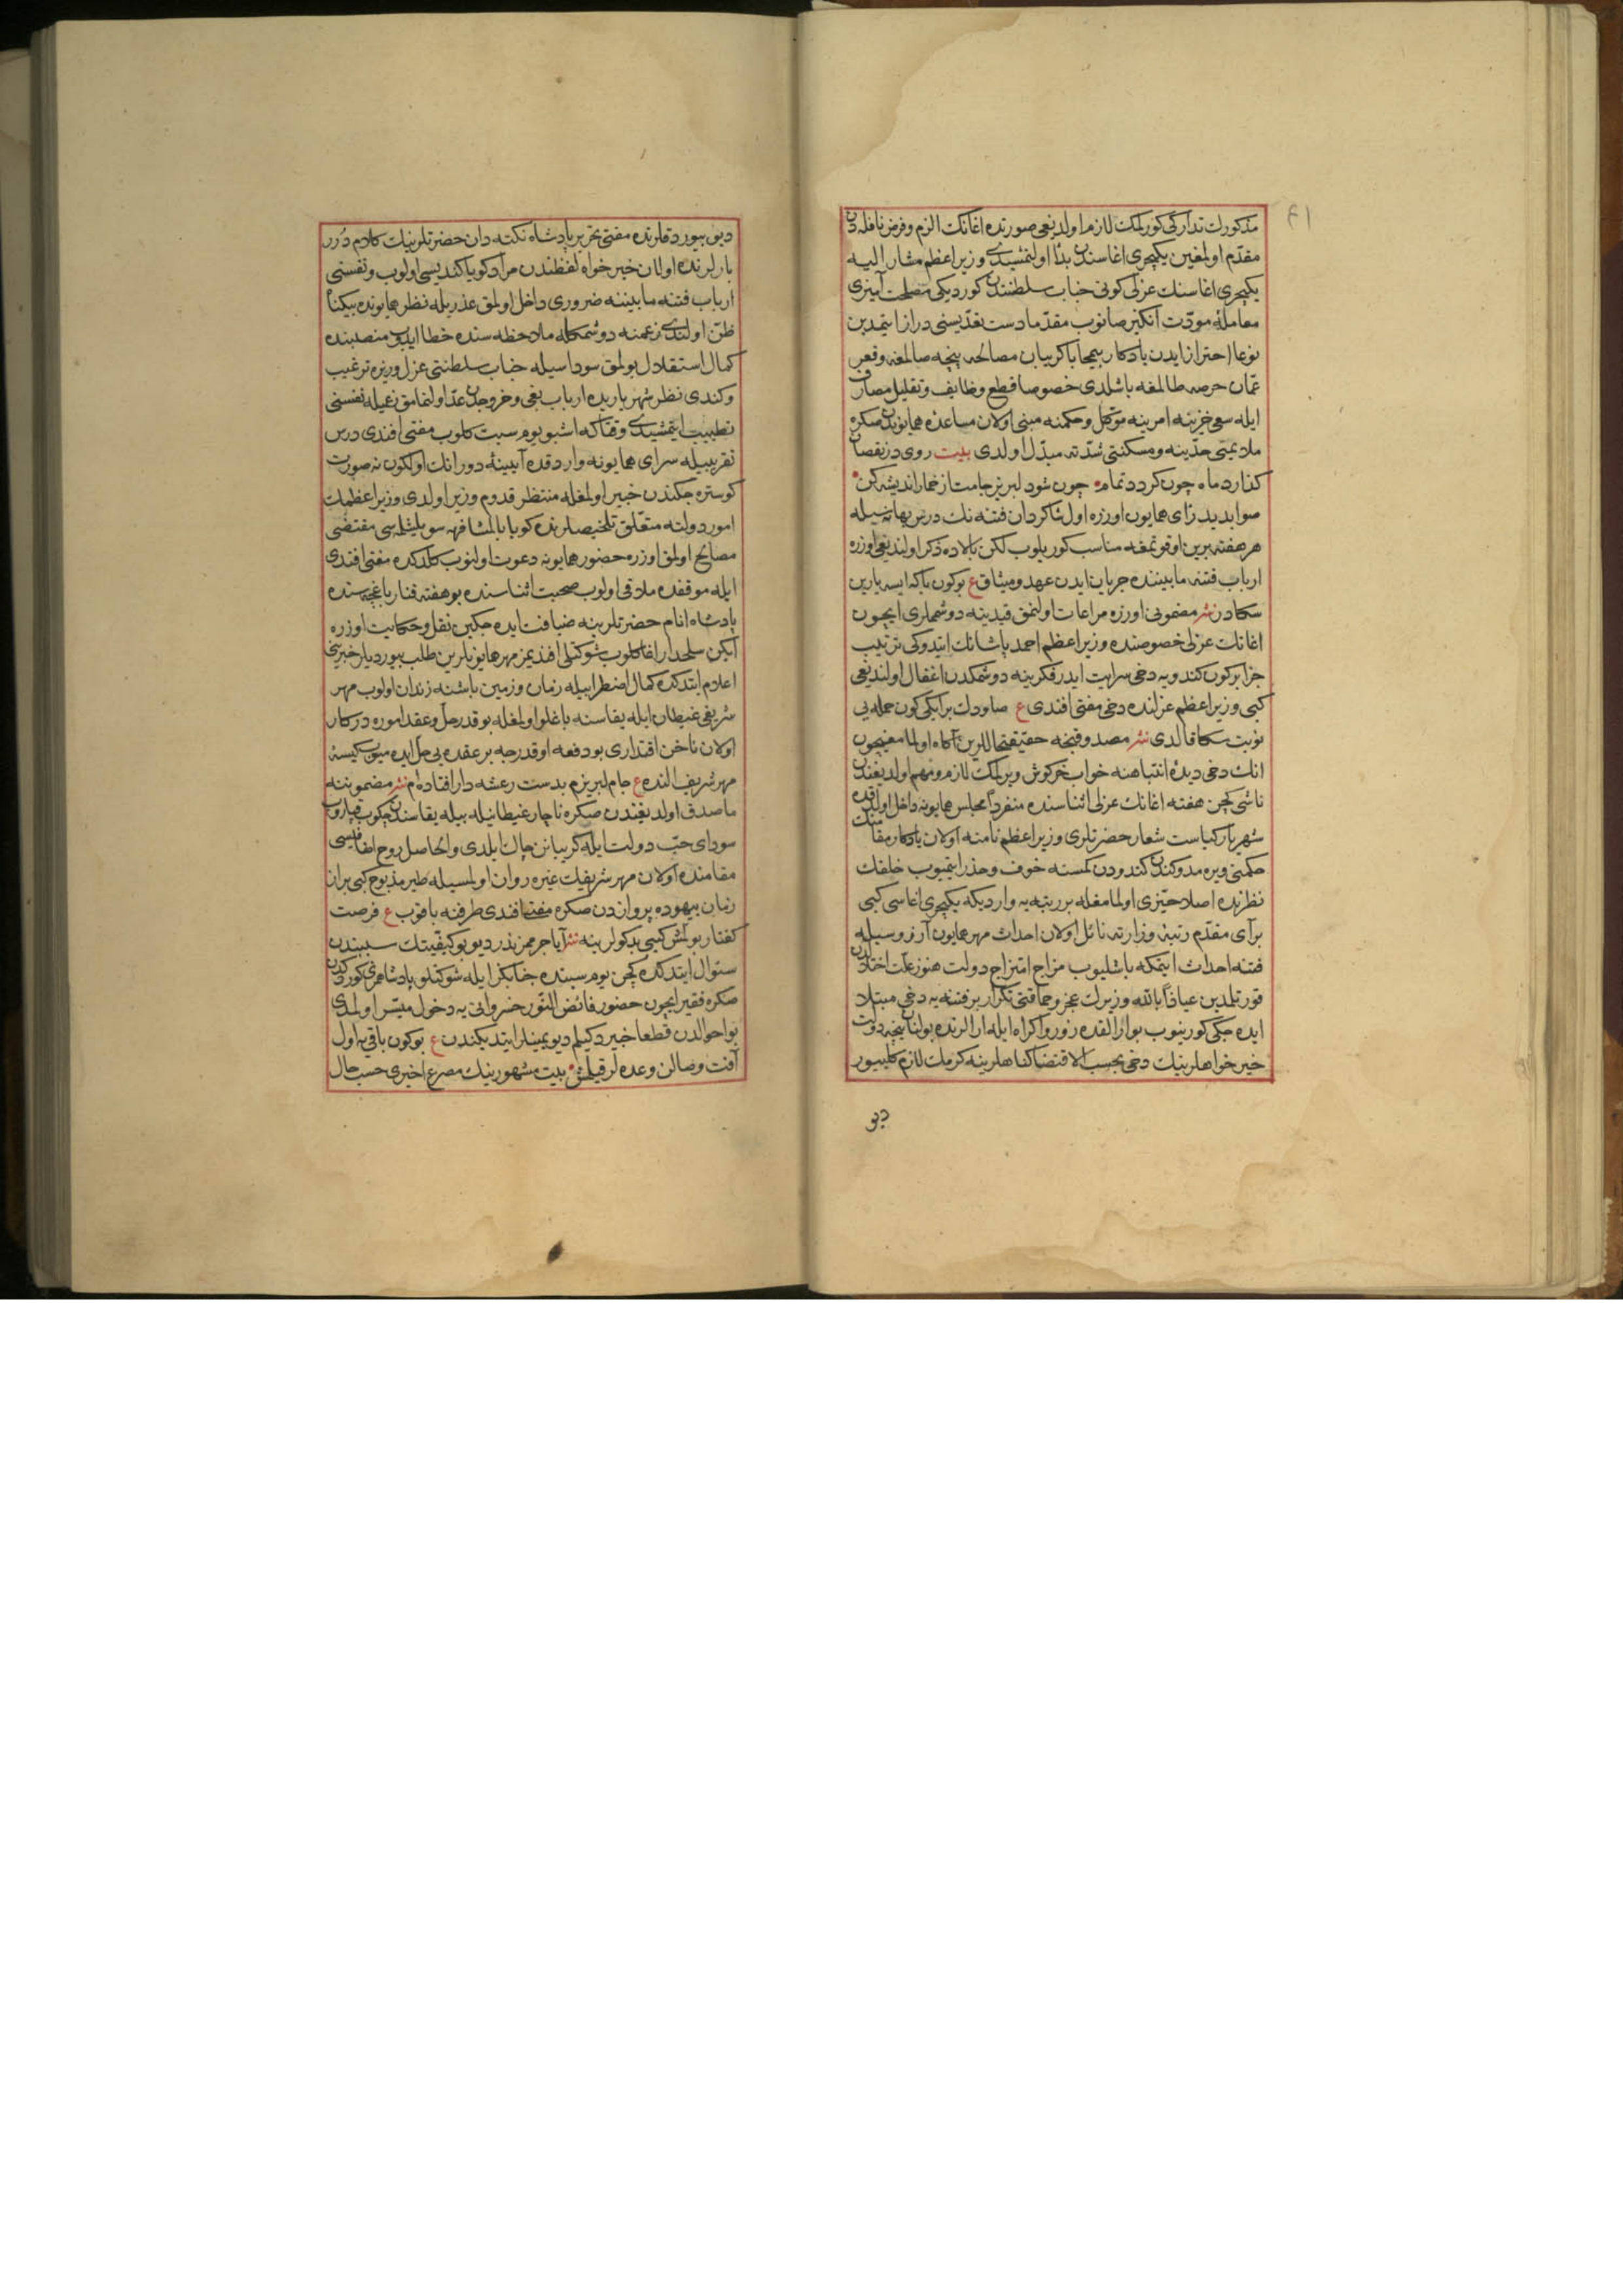 ٤١
مذكورك تداركی كورلمك لازم اولدیغی صورتده اغانك الزم وفرض نافله دن
مقدم اولمغین یكیچری اغاسندن بدأ اولنمشیدی وزیر اعظم مشار الیه
یكیچری اغاسنك عزلی كونی جناب سلطنتدن كوردیكی مصلحت آمیزی
معاملهٔ مودت انكیز صانوب مقدما دست تعدیسنی دراز ایتمدین
نوعا احتراز ایدن یادكار بیمحابا كریبان مصالحه پنجه صالمغه وقعر
عمان حرصه طالمغه باشلدی خصوصا قطع وظایف وتقلیل مصارف
ایله سعی خزینه امرینه موكل وحكمنه مبنی اولان مساعدهٔ همایوندن صكره
ملایمتی حدینه ومسكنتی شدته مبدل اولدی بیت روی در نقصان
كذارد ماه چون كردد تمام چون شود لبریز جامت از خمار اندیشه كن
صوابدید رای همایون اوزره اول شاكردان فتنه نك درس بهانه سیله
هر هفته برین اوقوتمغه مناسب كوریلوب لكن بالاده ذكر اولندیغی اوزره
ارباب فتنه مابیننده جریان ایدن عهد ومیثاق ع بوكون باكه ایسه یارین
سكادر نثر مضمونی اوزره مراعات اولنمق قیدینه دوشملری ایچون
اغانك عزلی خصوصنده وزیر اعظم احمد پاشانك ایتدوكی ترتیب
جزا بركون كندویه دخی سرایت ایدر فكرینه دوشمكدن اغفال اولندیغی
كبی وزیر اعظم عزلنده دخی مفتی افندی ع صاودك بر ایكی كون حمله یی
نوبت سكا قالدی نثر مصدوقنجه حقیقتحاللرین آكاه اولمامغیچون
انك دخی دیدهٔ انتباهنه خواب خركوش ویرلمك لازم ومهم اولدیغندن
ناشی كچن هفته اغانك عزلی اثناسنده منفردا مجلس همایونه داخل اولدقده
شهریار كیاست شعار حضرتلری وزیر اعظم نامنه اولان یادكار مقامنك
حكمنی ویره مدوكندن كندودن كمسنه خوف وحذر ایتمیوب خلقك
نظرنده اصلا حیزی اولمامغله بر رتبه یه واردیكه یكیچری اغاسی كبی
برآی مقدم رتبهٔ وزارته نائل اولان احداث مهر همایون آرزوسیله
فتنه احداث ایتمكه باشلیوب مزاج امتزاج دولت هنوز علت اختلالدن
قورتلمدین عیاذا بالله وزیرك عجز وحماقتی تكرار بر فتنه یه دخی مبتلا
ایده جكی كورینوب بو آرالقده زور واكراه ایله ارالرنده بولنان نیجه دولت
خیر خواهلرینك دخی بحسب الاقتضا كناهلرینه كرمك لازم كلییور
دیو
دیو بیوردقلرنده مفتی نحریر پادشاه نكته دان حضرتلرینك كلام درر
بارلرنده اولان خیر خواه لفظندن مراد كویا كندیسی اولوب ونفسنی
ارباب فتنه مابیننه ضروری داخل اولمق عذریله نظر همایونده بیكناه
ظن اولندی زعمنه دوشمكله ملاحظه سنده خطا ایدوب منصبنده
كمال استقلال بولمق سوداسیله جناب سلطنتی عزل وزیره ترغیب
وكندی نظر شهریاریده ارباب بغی وخروجدن عد اولنمامق زعمیله نفسنی
تطییب ایتمشیدی وقتاكه اشبو یوم سبت كلوب مفتی افندی درس
تقریبیله سرای همایونه واردقده آیینهٔ دورانك اولكون نه صورت
كوستره جكندن خبیر اولمغله منتظر قدوم وزیر اولدی وزیر اعظمك
امور دولته متعلق تلخیصلرنده كویا بالمشافهه سویلشلمسی مقتضی
مصالح اولمق اوزره حضور همایونه دعوت اولنوب كلدكده مفتی افندی
ایله موقفده ملاقی اولوب صحبت اثناسنده بو هفته فنار باغچه سنده
پادشاه انام حضرتلرینه ضیافت ایده جكین نقل وحكایت اوزره
ایكن سلحدار اغا كلوب شوكتلی افندیمز مهر همایونلرین طلب بیوردیلر خبرینی
اعلام ایتدكده كمال اضطرابیله زمان وزمین باشنه زندان اولوب مهر
شریفی غیطان ایله یقاسنه باغلو اولمغله بو قدر حل وعقد اموره دركار
اولان ناخن اقتداری بو دفعه اوقدرجه بر عقده یی حل ایده میوب كیسهٔ
مهر شریف النده ع جام لبریزم بدست رعشه دار افتاده ام نثر مضموننه
ماصدق اولدیغندن صكره ناچار غیطانیله بیله یقاسندن چكوب قپاروب
سودای حب دولت ایله كریبانن چاك ایلدی والحاصل روح انفاسی
مقامنده اولان مهر شریفك غیره روان اولمسیله طیر مذبوح كبی بر از
زمان بیهوده پروازدن صكره مفتی افندی طرفنه باقوب ع فرصت
كفتار بولمش كبی بدكولرینه نثر آیا جرممز ندر دیو بو كیفیتك سببندن
سئوال ایتدكده كچن یوم سبنده جنابكز ایله شوكتلو پادشاهمزی كوردكدن
صكره فقیر ایچون حضور فائض النور خسروانی یه دخول میسر اولمدی
بو احوالدن قطعا خبیر دكیلم دیو یمینلر ایتدیكندن ع بوكون باقی یه اول
آفت وصالن وعده لر قیلمش بیت مشهورینك مصرع اخیری حسب حال